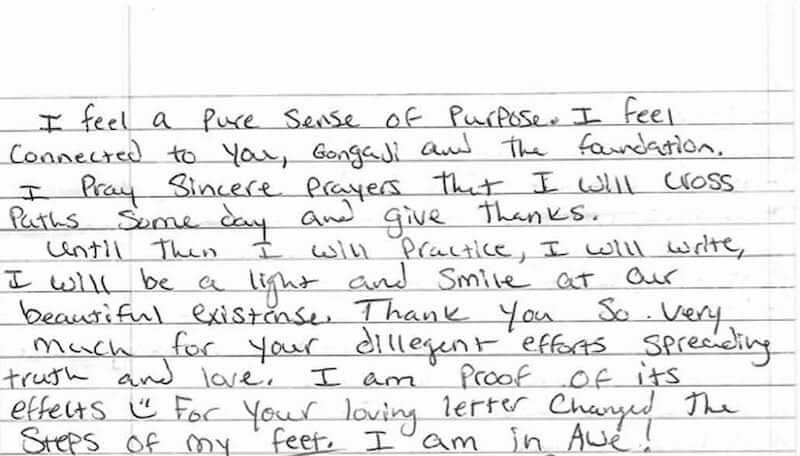 I feel a pure sense of purpose. I feel
connected to you, Gongaji and the foundation.
I pray sincere prayers that I will cross
paths some day and give thanks.
Until then I will practice, I will write,
I will be a light and smile at our
beautiful existanse. Thank you so very
much for your dillegent efforts spreading
truth and love. I am proof of its
effects For your loving letter changed the
steps of my feet. I am in Awe!